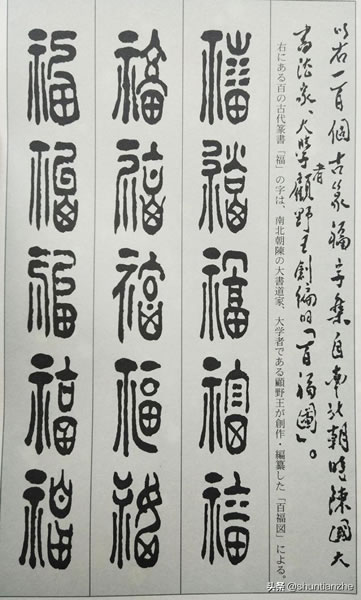 以右一百個古篆福字集自南北朝時陳國大
書法家、大學者顧野王創編的「百福圖」。
右にある百の古代篆書「福」の字は、南北朝陳の大書道家、大学者である顧野王が創作・編纂した「百福図」による。
福福福福福
福福福福福
福福福福福
头条 @shuntianzhe